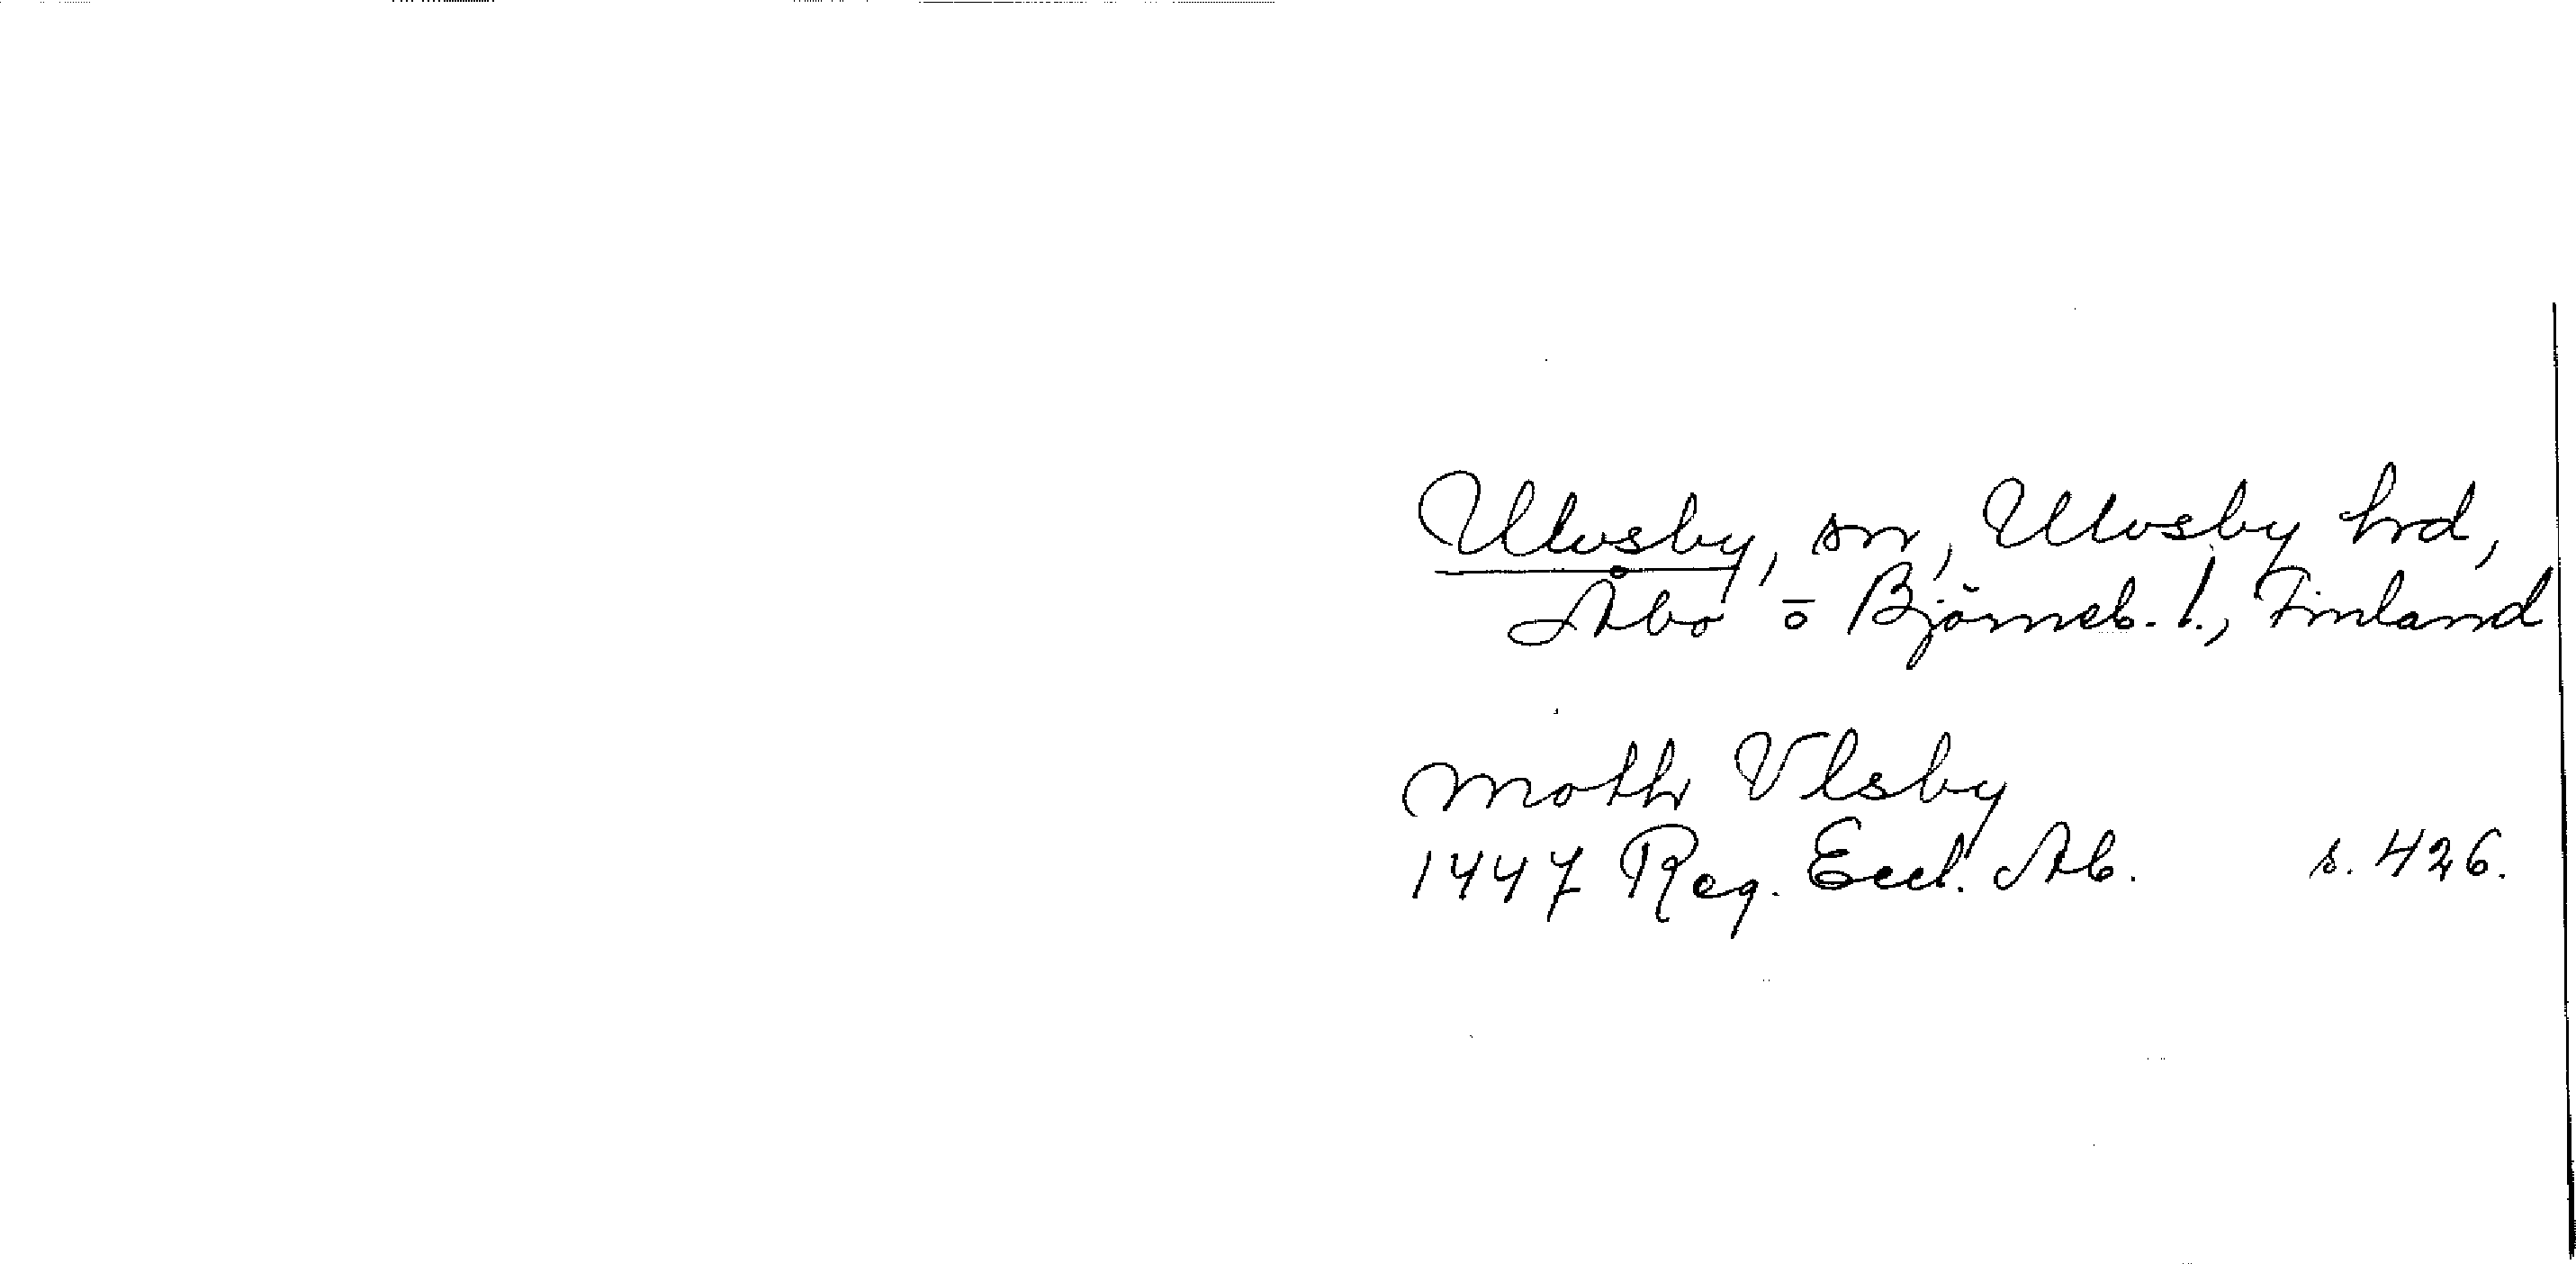 Ulvsby, sn, Ulvsby hrd,
Åbo o Björneb. l., Finland
moth Vlsby
1447 Reg. Eccl. Ab. s. 426.